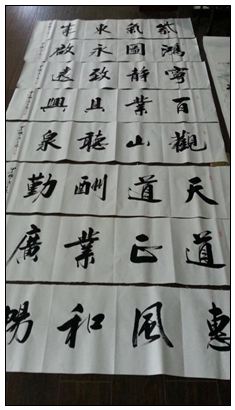 紫氣東來
鴻圖永啟
寧靜致遠
百業具興
觀山聽泉
天道酬勤
道正業廣
惠風和暢